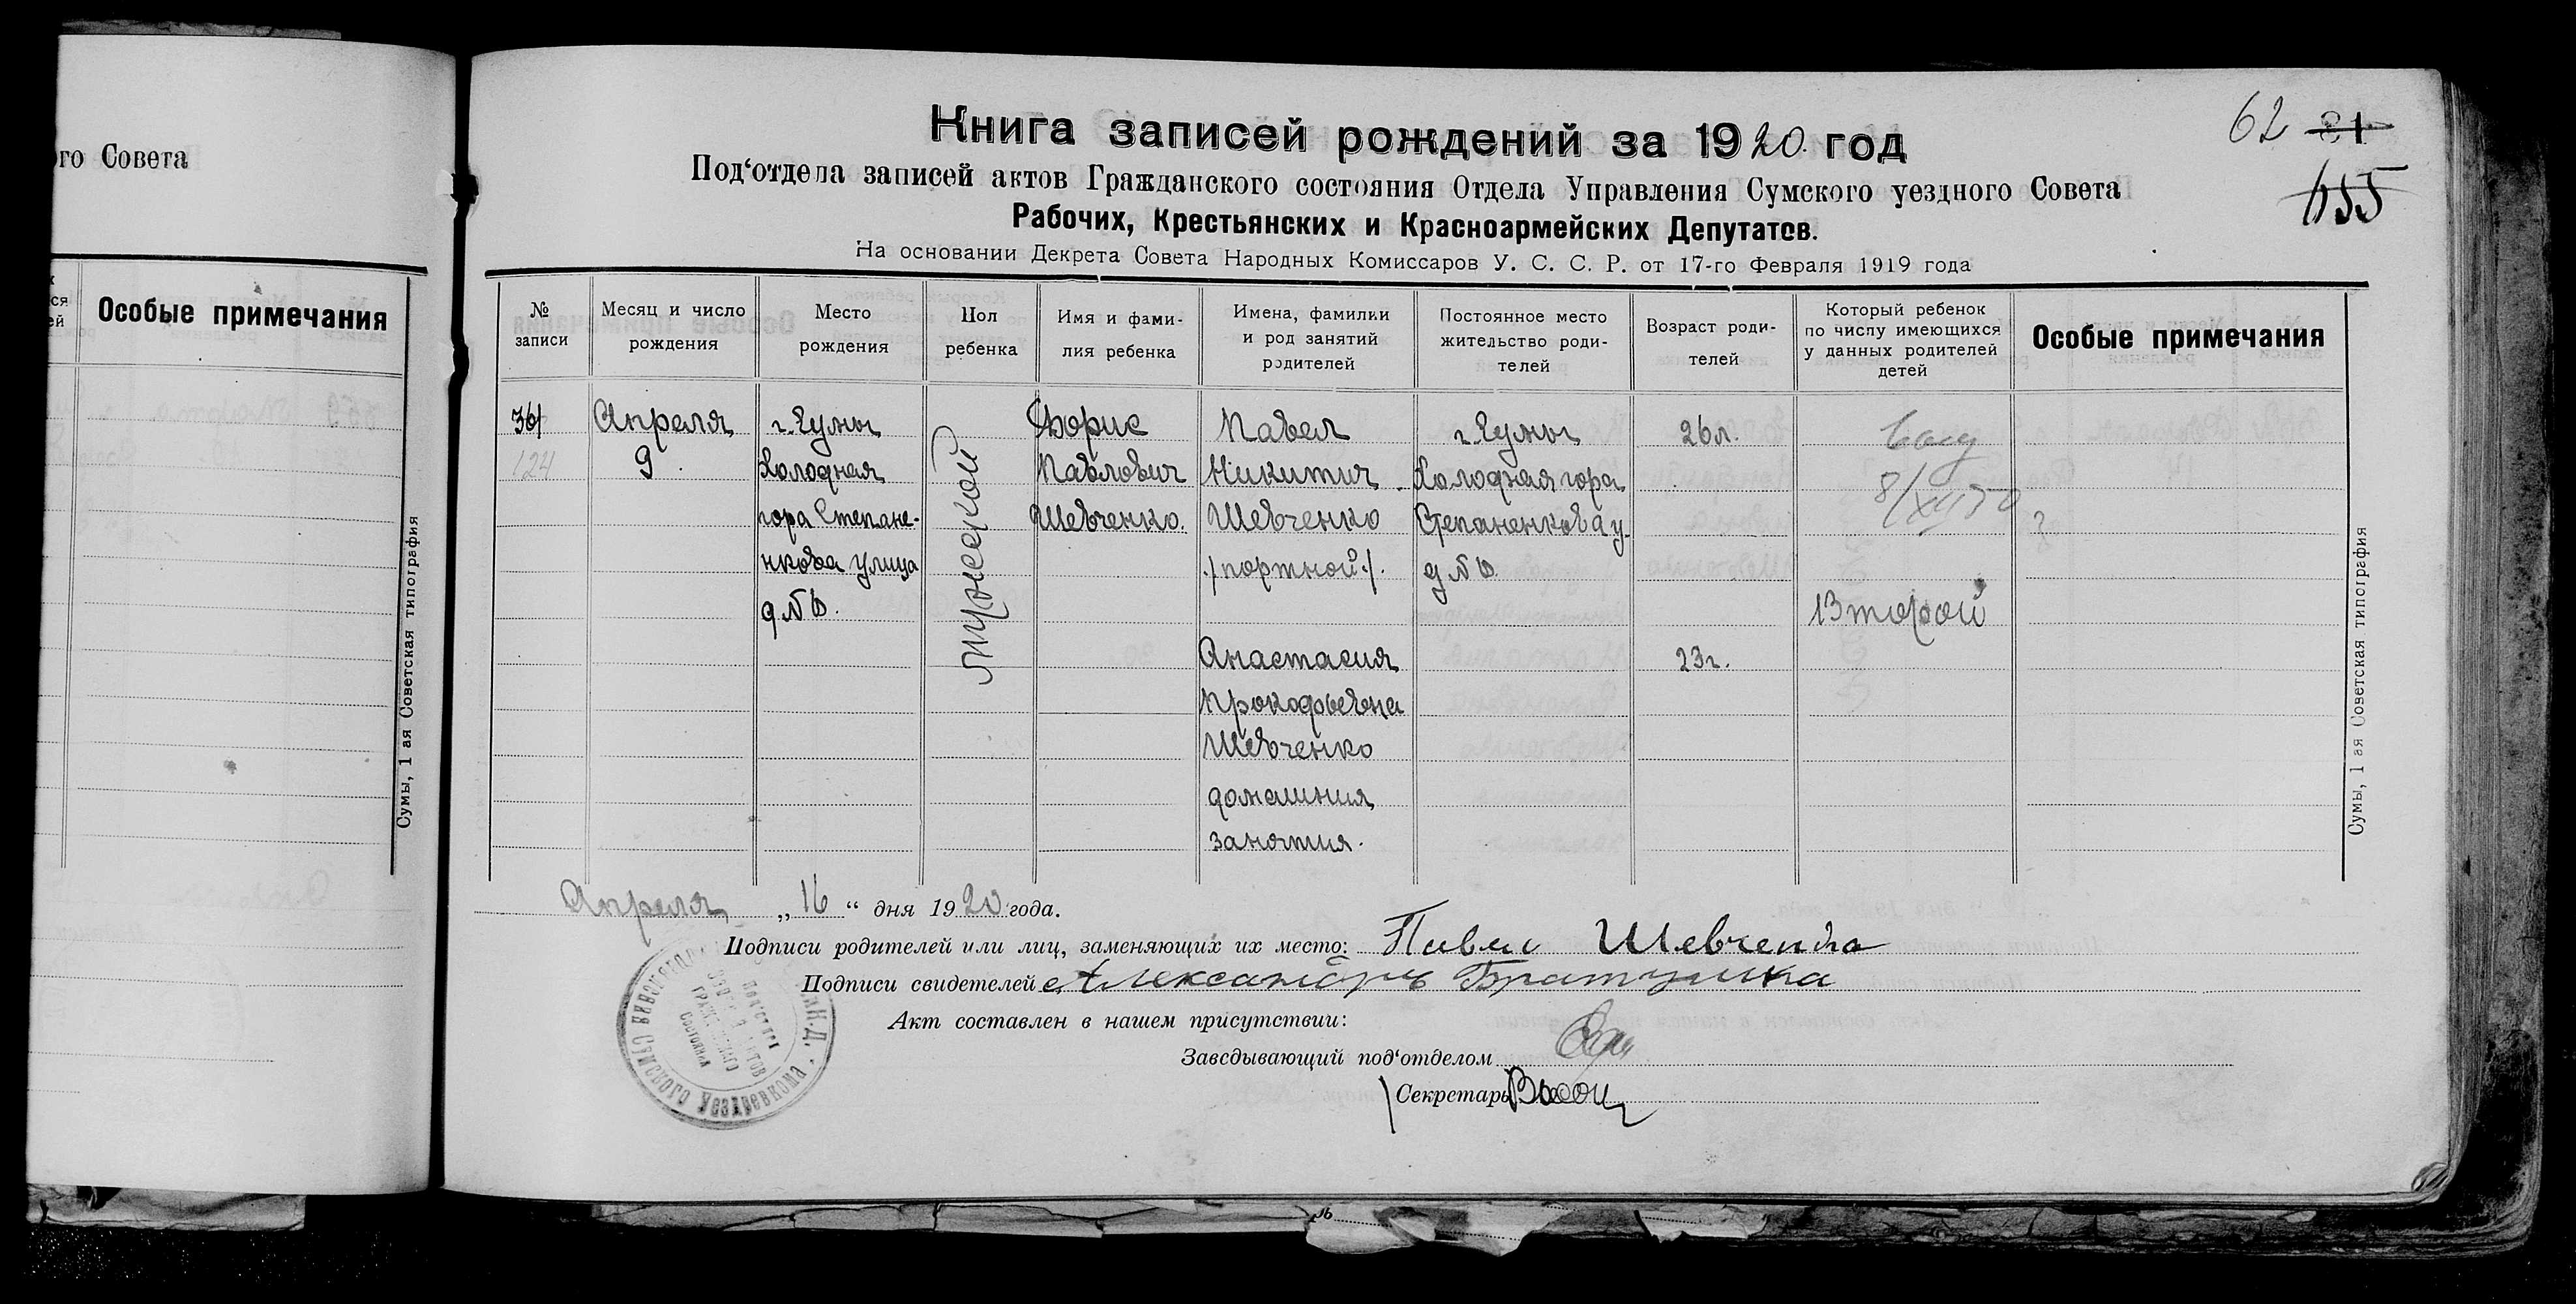 го Совета
Особые примечания
Сумы, 1 ая Советская типография
62 81
655
Книга записей рождений за 1920 год
Под‘отдела записей актов Гражданского состояния Отдела Управления Сумского уездного Совета
Рабочих, Крестьянских и Красноармейских Депутатов.
На основании Декрета Совета Народных Комиссаров У. С. С. Р. от 17-го Февраля 1919 года
№ записи
Месяц и число рождения
Место рождения
Пол ребенка
Имя и фами-
лия ребенка
Имена, фамилии
и род занятий
родителей
Постоянное место
жительство роди-
телей
Возраст роди-
телей
Который ребенок
по числу имеющихся
у данных родителей
детей
Особые примечания
124
Апреля
9
г. Сумы
Холодная
гора Степане-
нкова улица
мужеской
Борис
Павлович
Шевченко.
Павел
Никитич
Шевченко
/портной/.
Анастасия
Прокофьевна
Шевченко
домашния
занятия.
г. Сумы
Холодная гора
Степаненкова у.
26 л.
23 г.
8/XII 50
Второй
Сумы, 1 ая Советская типография
Апреля „16“ дня 1920 года.
Подписи родителей или лиц, заменяющих их место: Павел Шевченко
Подписи свидетелей Александръ Братушка
Акт составлен в нашем присутствии:
Заведывающий под‘отделом
Секретарь
Сумского Уездревкома
Подотдел
Записи Актов
Гражданского
Состояния